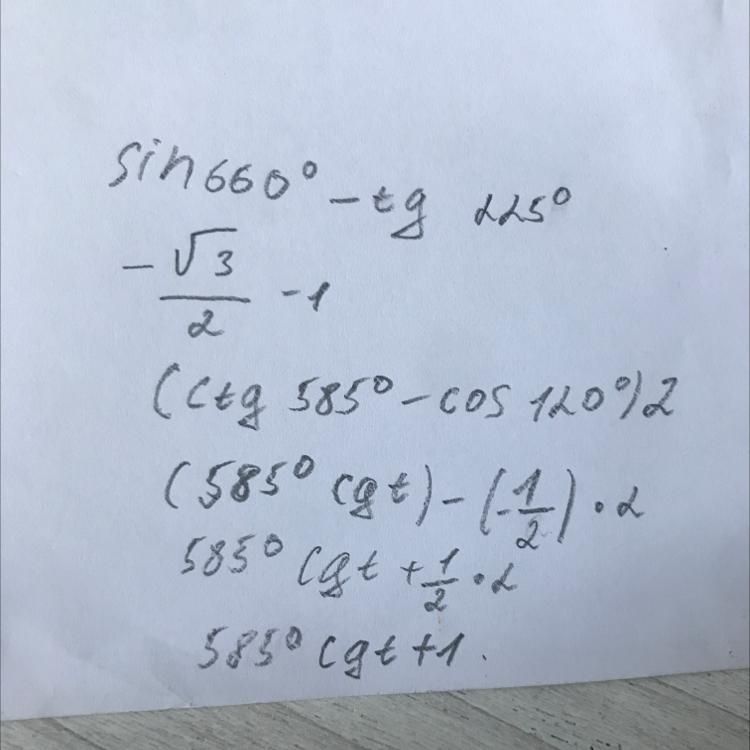 sin660° - tg 225°
- √3/2 - 1
(ctg 585° - cos 120°)2
(585° cgt) - (-1/2) · 2
585° cgt + 1/2 · 2
585° cgt + 1.